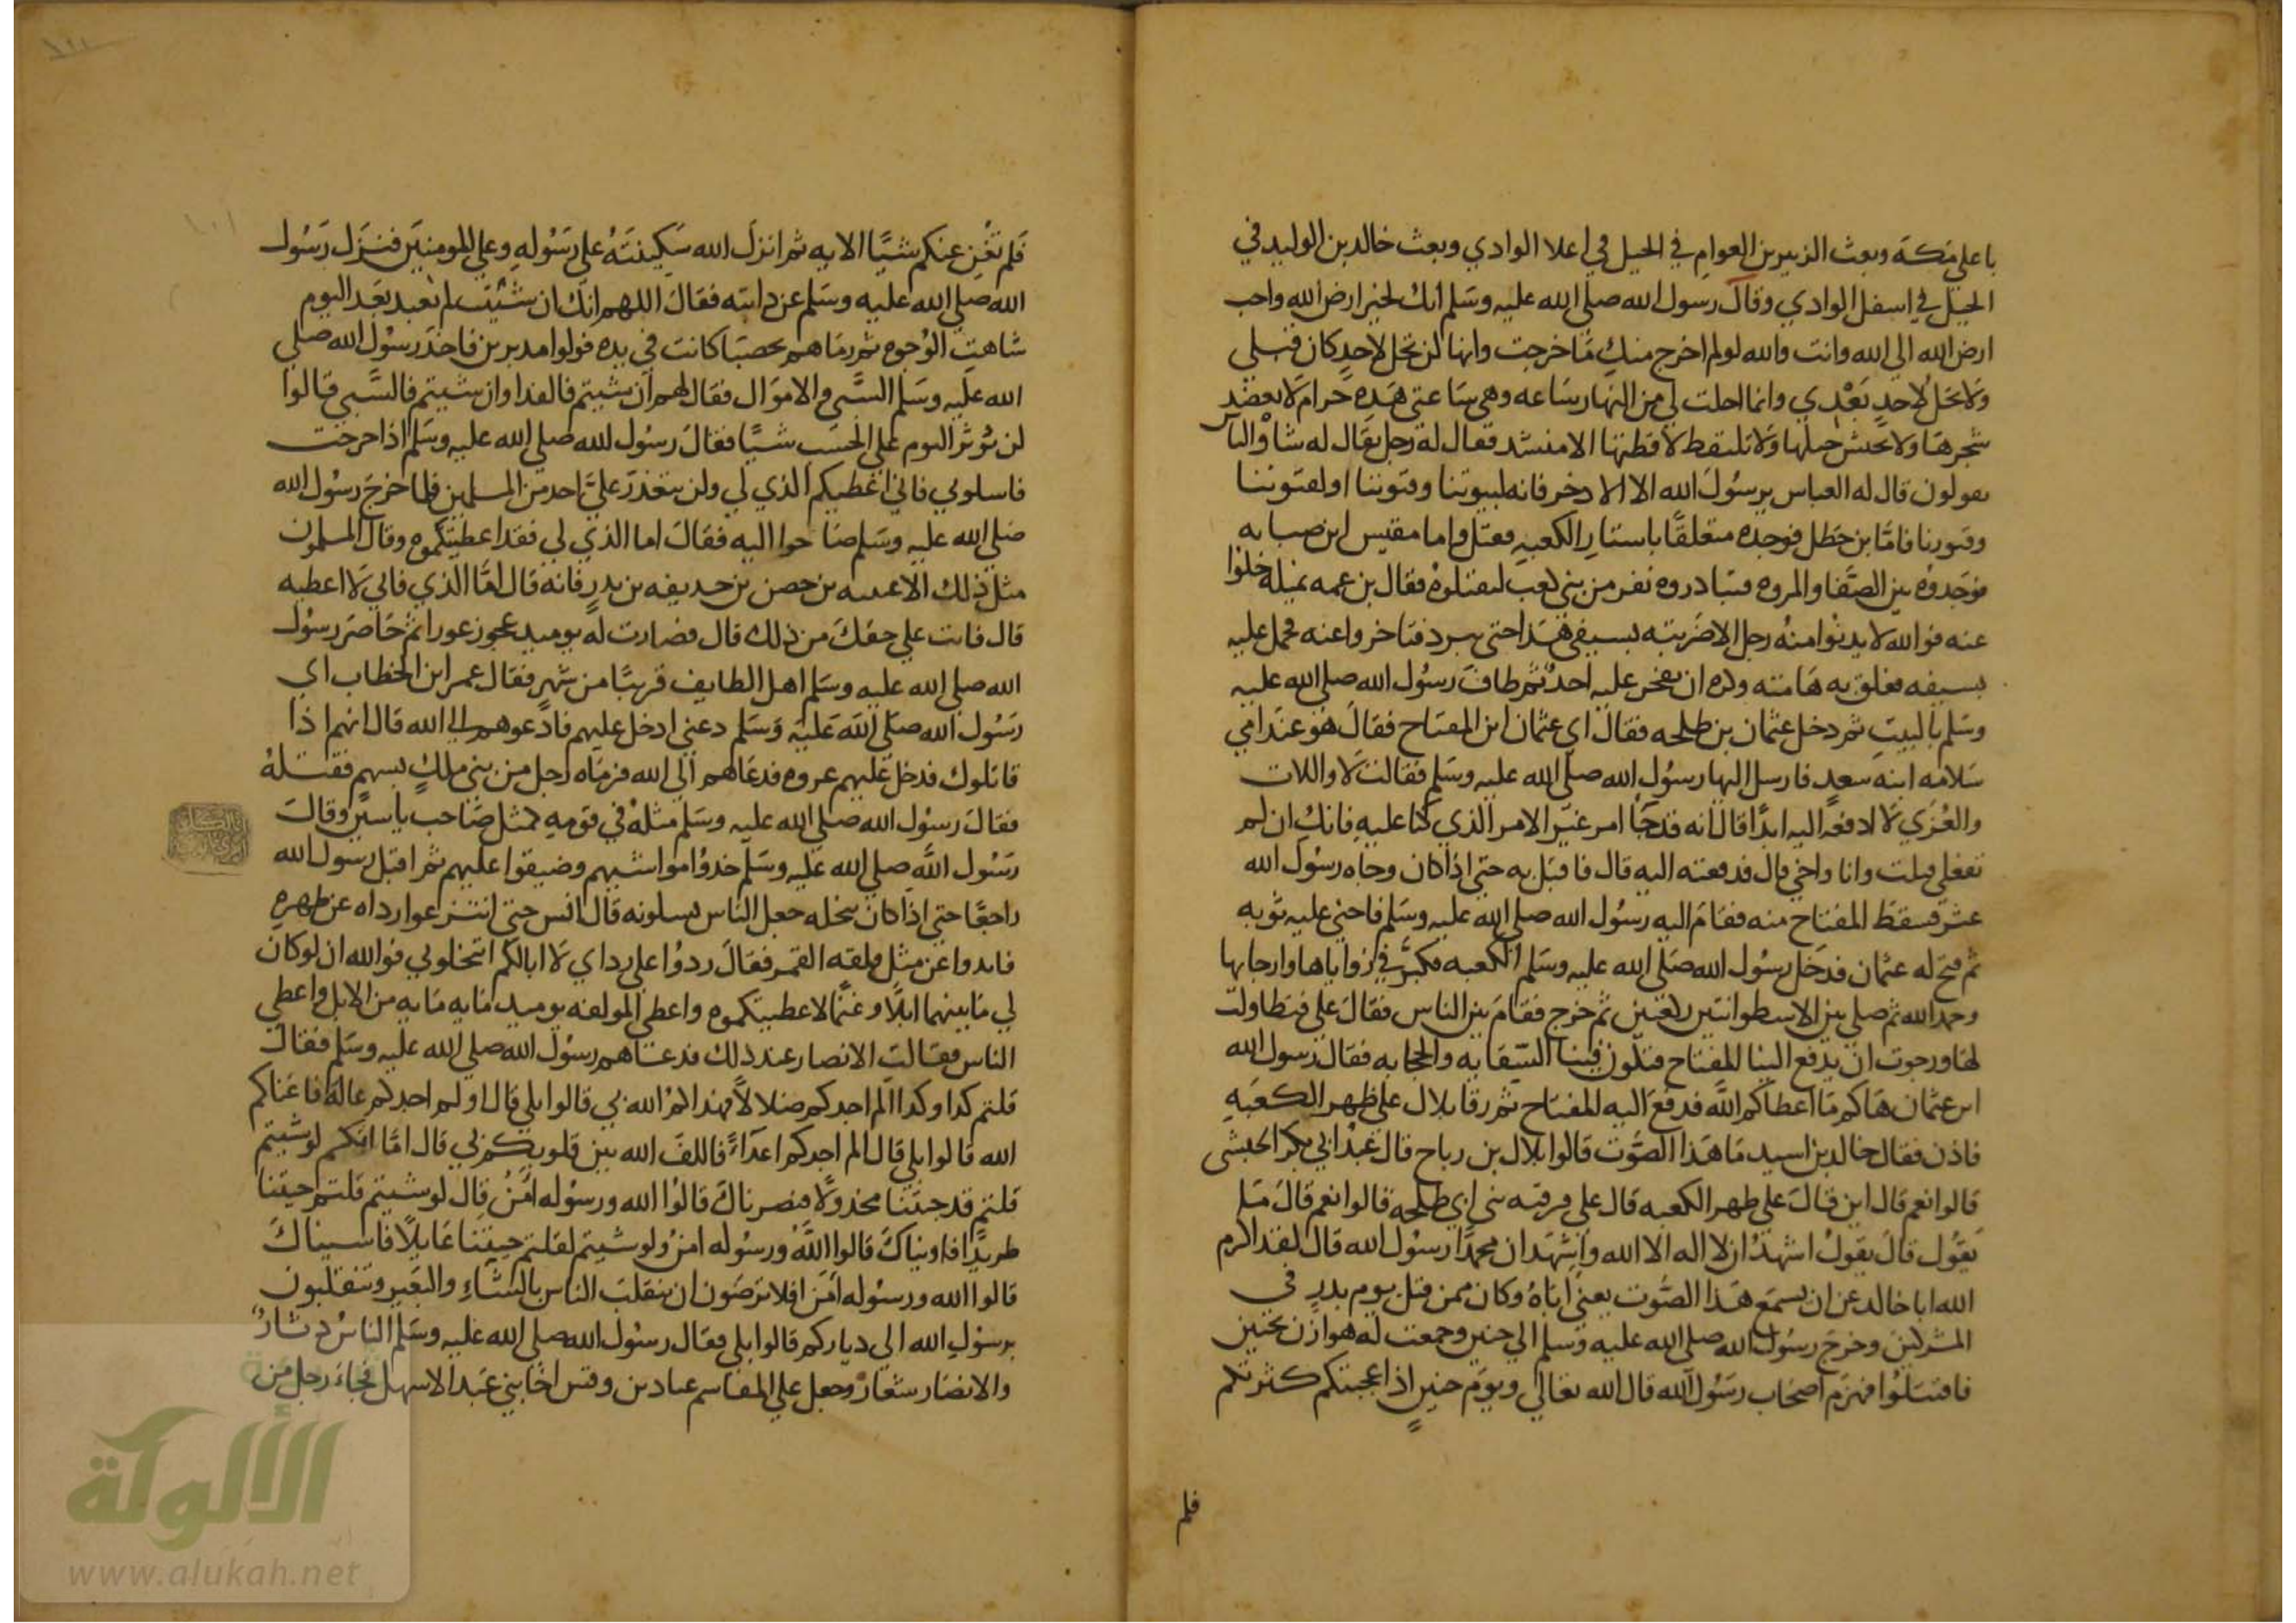 باعلي مكة وبعث الزبير بن العوام في الخيل في اعلا الوادي وبعث خالد بن الوليد في
الخيل في اسفل الوادي وقال رسول الله صلي الله عليه وسلم انك لخير ارض الله واحب
ارض الله الي الله وانت والله لو لم اخرج منك ما خرجت وانها لن تحل لاحد كان قبلي
ولا تحل لاحد بعدي وانما احلت لي من النهار ساعه وهي ساعتي هذه حرام لا يعضد
شجرها ولا يحتش حبلها ولا تلتقط لاقطتها الا منشد فقال له رجل يقال له شاه والناس
يقولون قال له العباس يرسول الله الا الاذخر فانه لبيوتنا وقيوننا او لقيوننا
وقبورنا فاما بن خطل فوجده متعلقا باستار الكعبه فقتل واما مقيس ابن صبابه
فوجدوه بين الصفا والمروه فتبادروه نفر من بني كعب ليقتلوه فقال بن عمه نميله خلوا
عنه فوالله لا يدنوا منه رجل الا ضربته بسيفي هذا حتي يبرد فتاخروا عنه فحمل عليه
بسيفه ففلق به هامته وكره ان يفخر عليه احد ثم طاف رسول الله صلي الله عليه
وسلم بالبيت ثم دخل عثمان بن طلحه فقال اي عثمان اين المفتاح فقال هو عند امي
سلامه ابنه سعد فارسل اليها رسول الله صلي الله عليه وسلم فقالت لا واللات
والعزي لا ادفعه اليه ابدا قال انه قد جا امر غير الامر الذي كنا عليه فانك ان لم
تفعلي قتلت وانا واخي قال فدفعته اليه قال فاقبل به حتي اذا كان وجاه رسول الله
عثر فسقط المفتاح منه فقام اليه رسول الله صلي الله عليه وسلم فاحني عليه ثوبه
ثم فتح له عثمان فدخل رسول الله صلي الله عليه وسلم الكعبه فكبر في زواياها وارجايها
وحمد الله ثم صلي بين الاسطوانتين ركعتين ثم خرج فقام بين الناس فقال علي فتطاولت
لها ورجوت ان يدفع الينا المفتاح فتكون فينا السقايه والحجابه فقال رسول الله
اين عثمان هاكم ما اعطاكم الله فدفع اليه المفتاح ثم رقا بلال علي ظهر الكعبه
فاذن فقال خالد بن اسيد ما هذا الصوت قالوا بلال بن رباح قال عبد ابي بكر الحبشي
قالوا نعم قال اين قال علي ظهر الكعبه قال علي مرقبه بني ابي طلحه قالوا نعم قال ما
يقول قال يقول اشهد ان لا اله الا الله واشهد ان محمدا رسول الله قال لقد اكرم
الله ابا خالد عن ان يسمع هذا الصوت يعني اباه وكان ممن قتل يوم بدر في
المشركين وخرج رسول الله صلي الله عليه وسلم الي حنين وجمعت له هوازن بحنين
فاقتتلوا فهزم اصحاب رسول الله قال الله تعالي ويوم حنين اذ اعجبتكم كثرتكم
فلم
فلم تغن عنكم شيا الايه ثم انزل الله سكينته علي رسوله وعلي المومنين فنزل رسول
الله صلي الله عليه وسلم عن دابته فقال اللهم انك ان شئت لم تعبد بعد اليوم
شاهت الوجوه ثم رماهم بحصبا كانت في يده فولوا مدبرين فاخذ رسول الله صلي
الله عليه وسلم السبي والاموال فقال لهم ان شيتم فالفدا وان شيتم فالسبي قالوا
لن نوثر اليوم علي الحسب شيا فقال رسول الله صلي الله عليه وسلم اذا خرجت
فاسلوني فاني اعطيكم الذي لي ولن يتعذر علي احد من المسلمين فلما خرج رسول الله
صلي الله عليه وسلم صاحوا اليه فقال اما الذي لي فقد اعطيتكموه وقال المسلمون
مثل ذلك الا عيينه بن حصن بن حذيفه بن بدر فانه قال اما الذي فاني لا اعطيه
قال فانت علي حقك من ذلك قال فصارت له يوميد عجوز عورا ثم حاصر رسول
الله صلي الله عليه وسلم اهل الطايف قريبا من شهر فقال عمر ابن الخطاب اي
رسول الله صلي الله عليه وسلم دعني ادخل عليهم فادعوهم الي الله قال انهم اذا
قاتلوك فدخل عليهم عروه فدعاهم الي الله فرماه رجل من بني ملك بسهم فقتله
فقال رسول الله صلي الله عليه وسلم مثله في قومه كمثل صاحب ياسين وقال
رسول الله صلي الله عليه وسلم خذوا مواشيهم وضيقوا عليهم ثم اقبل رسول الله
راجعا حتي اذا كان بنخله جعل الناس يسلونه قال انس حتي انتزعوا رداه عن ظهره
فابدوا عن مثل فلقه القمر فقال ردوا علي رداي لا ابالكم اتبخلوني فوالله ان لو كان
لي ما بينهما ابلا وغنما لاعطيتكموه واعطي المولفه يوميد مايه مايه من الابل واعطي
الناس فقالت الانصار عند ذلك فدعاهم رسول الله صلي الله عليه وسلم فقال
قلتم كدا وكدا الم اجدكم ضلالا فهداكم الله بي قالوا بلي قال او لم اجدكم عاله فاغناكم
الله قالوا بلي قال الم اجدكم اعداء فاللف الله بين قلوبكم بي قال اما انكم لو شيتم
قلتم قد جيتنا مخذولا فنصرناك قالوا الله ورسوله امن قال لو شيتم قلتم جيتنا
طريدا فاويناك قالوا الله ورسوله امن ولو شيتم لقلتم جيتنا عايلا فاسيناك
قالوا الله ورسوله امن افلا ترضون ان ينقلب الناس بالشاء والبعير وتنقلبون
برسول الله الي دياركم قالوا بلي فقال رسول الله صلي الله عليه وسلم الناس دثار
والانصار شعار وجعل علي المقاسم عباد بن وقس اخا بني عبد الاسهل فجاء رجل من
الألوكة
www.alukah.net